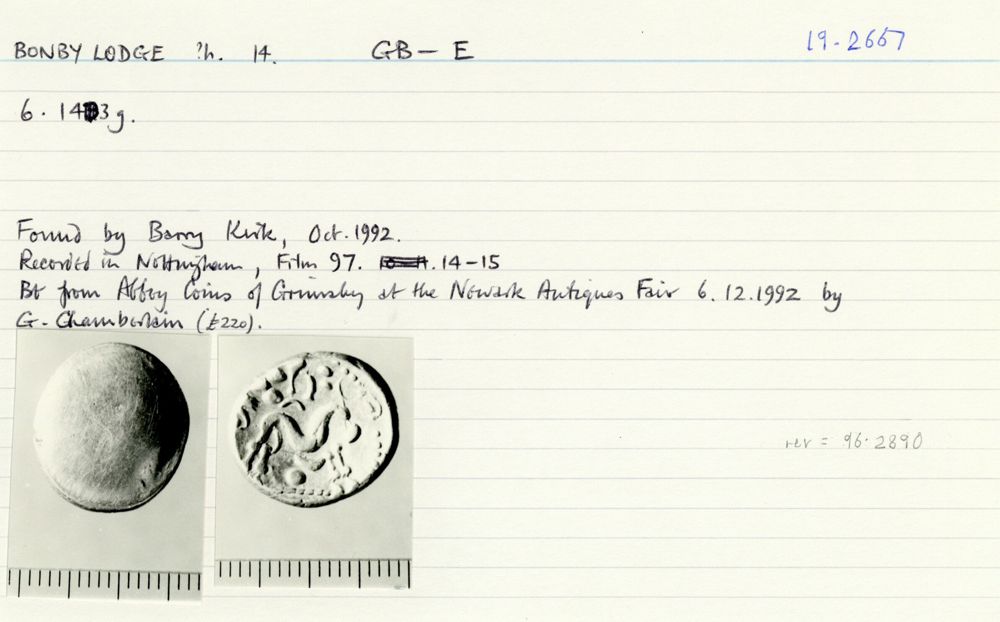 BONBY LODGE ?h. 14. GB - E 19-2667
6.143g.
Found by Barry Kirk, Oct. 1992.
Recorded in Nottingham, Film 97. 14-15
Bt from Abbey Coins of Grimsby at the Newark Antiques Fair 6.12.1992 by
G. Chamberlain (£220).
rev = 96.2890